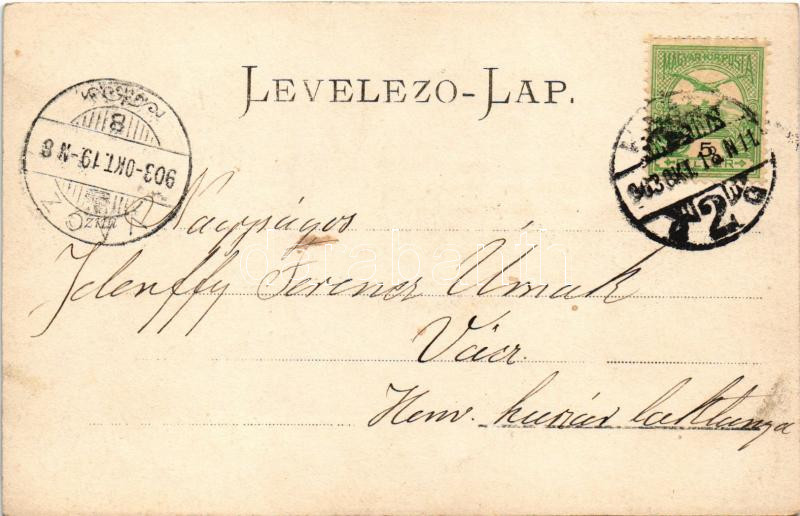 LEVELEZŐ-LAP.
MAGYAR KIR. POSTA
5
903 OKT. 18 N 11
2
8
903-OKT.19-N 8
Nagyságos
Jelenffy Ferencz Urnak
Vácz.
Honv. huszár laktanya